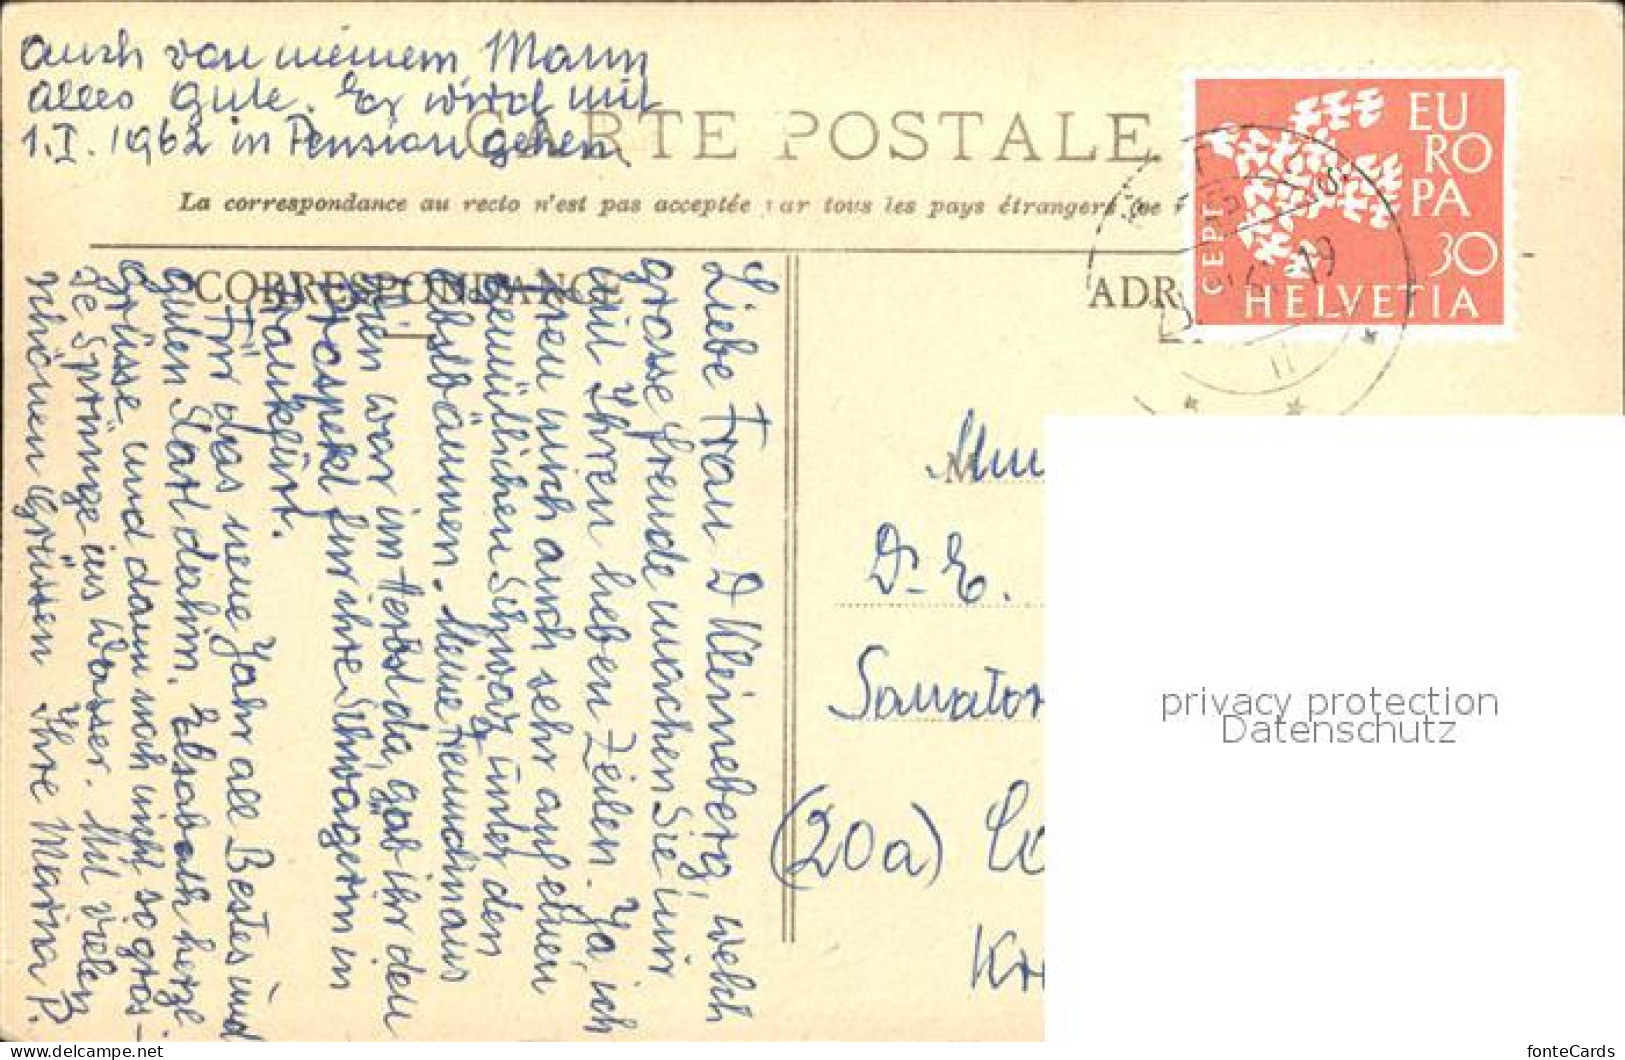 auch von meinem Mann
alles Gute. Er wird mit
1.I. 1962 in Pension gehen.
CARTE POSTALE
La correspondance au recto n'est pas acceptée par tous les pays étrangers
CORRESPONDANCE
Liebe Frau D Kleineberg, welch
grosse Freude machen Sie mir
mit Ihren lieben Zeilen. Ja, ich
freu mich auch sehr auf einen
gemütlichen Schwatz unter den
Obstbäumen. Meine Freundin aus
Wien war im Herbst da, gab ihr den
Prospekt für ihre Schwägerin in
Frankfurt.
Für das neue Jahr all Bestes und
guten Start dahin. Elsabeth herzl
Grüsse und dann noch nicht so gros-
se Sprünge ins Wasser. Mit vielen
schönen Grüssen Ihre Merina P.
ADR
EU
RO
PA
30
CEPT
HELVETIA
19
M
Dr. E.
Sanator
(20a)
Kr
privacy protection
Datenschutz
fonteCards